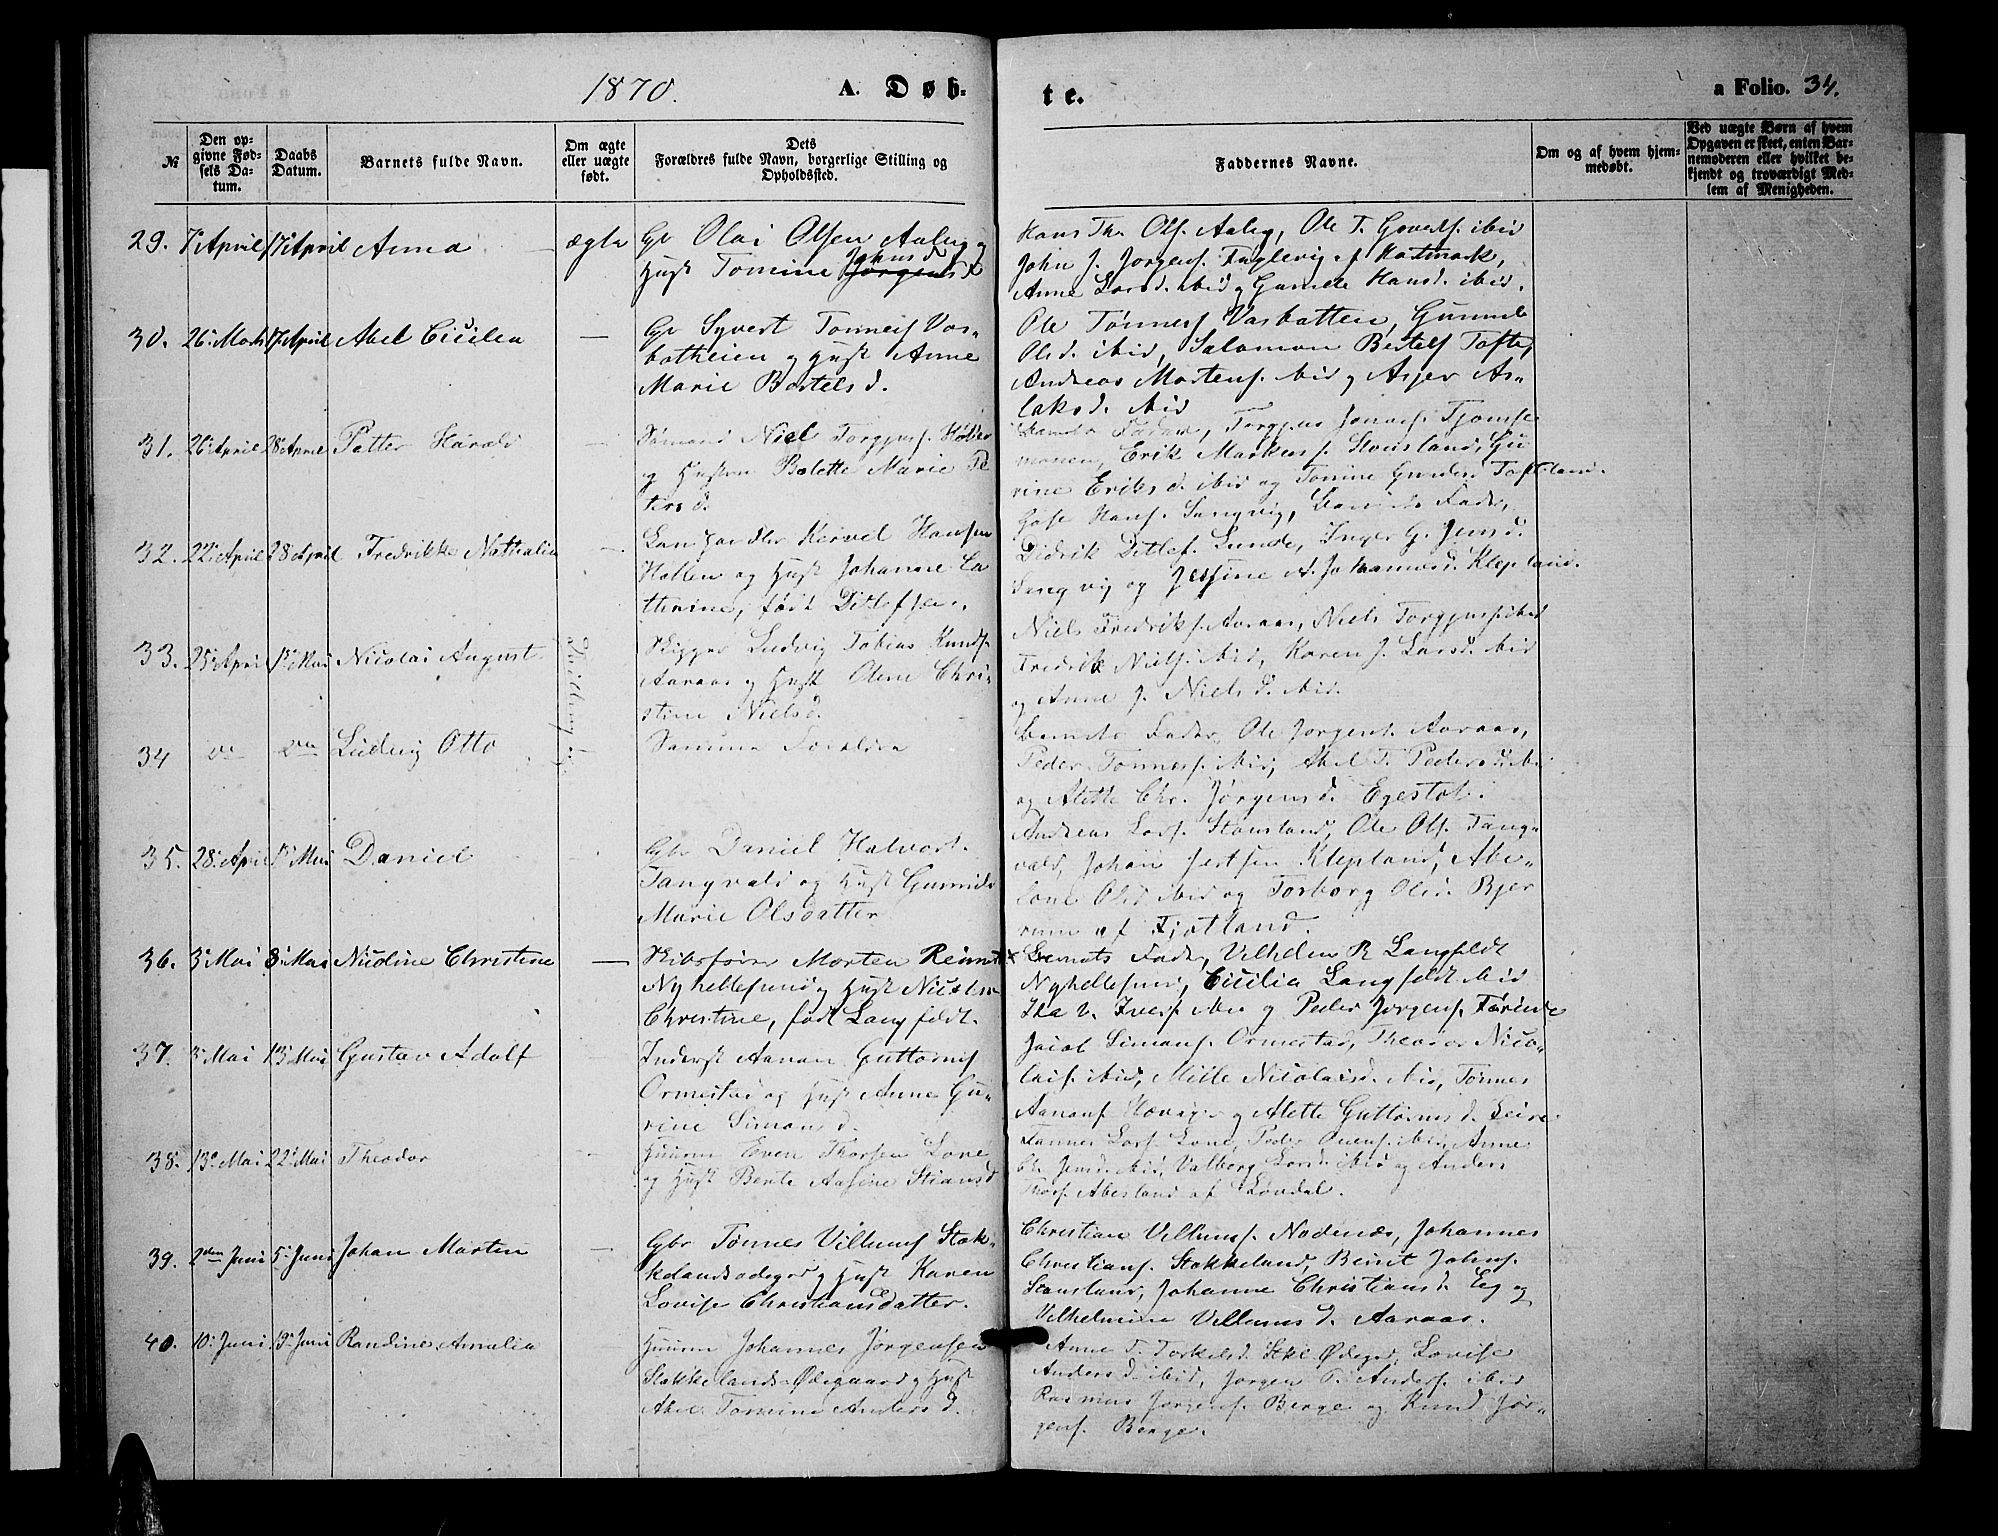 1870.
A. Døb-
te.
a Folio. 34.
№
Den op-
givne Fød-
sels Da-
tum.
Daabs
Datum.
Barnets fulde Navn.
Om ægte
eller uægte
født.
Dets
Forældres fulde Navn, borgerlige Stilling og
Opholdssted.
Faddernes Navne.
Om og af hvem hjem-
medøbt.
Ved uægte Børn af hvem
Opgaven er skeet, enten Bar-
nemoderen eller hvilket be-
kjendt og troværdigt Med-
lem af Menigheden.
29. 7 April 17 April Anna ægte
Gb Olai Olsen Aaleg og
Hust Tomine Johnsd Jørgensd
Hans Th. Ols. Aaleg, Ole T. ibid
John J. Jørgens. Fuglevig af Hatmark,
Anne Larsd. ibid og Gunnele Hansd. ibid.
30. 26 April Abel Cicilea —
Gb Syvert Tønnes Vas-
batheien og Hust Anne
Marie Bertelsd.
Ole Tønness Vasbatten, Gunnele
Olsd. ibid, Salomon Bertels Tofte,
Andreas Mortens. ibid og Asjer As-
laksd. ibid
31. 26 April 28 April Petter Harald —
Sømand Niel Torgjus. Holte
og Hustru Bolette Marie Pe
tersd.
Barnets Fader, Torgjus Jonas. Tjomse
Erik Markus. Stousland, Gu
rine Eriksd. ibid og Tomine Gundersd. Toftland.
32. 22 April 28 April Fredrikke Nathalia —
Landhandler Kervel Hansen
Holten og Hust Johanne Ca
thrine, født Ditlefsen.
Hans. Sangvig, Barnets Fader,
Didrik Ditlef. Lunde, Inger G. Jensd.
Sangvig og Jessine A. Johannesd. Klepland.
33. 25 April 1 Mai Nicolai August
Tvillinger
Skipper Ludvig Tobias Knuds.
Aaraas og Hust Olene Chri-
stine Nielsd.
Niels Fredriks. Aaraas, Niels Torgjus. ibid
Fredrik Niels. ibid, Karen J. Larsd. ibid
og Anne J. Nielsd. ibid.
34 do do Ludvig Otto
Samme Forældre
Barnets Fader, Ole Jørgens. Aaraas,
Peder Tønness. ibid, Abel T. Pedersd. ibid
og Alette Chr. Jørgensd. Egestøl.
35. 28 April 1 Mai Daniel —
Gbr Daniel Halvors.
Tangvald og Hust Gunnild
Marie Olsdatter
Andreas Lars. Stousland, Ole Ols. Tang-
vald, Johan Jertsen Klepland, Abe-
lone Olsd. ibid og Torborg Olsd. Bjer
rum af Fjotland.
36. 3 Mai 8 Mai Nicoline Christine —
Skibsfører Morten Reinert
Nyhellesund og Hust Nicoline
Christine, født Langfeldt.
Barnets Fader, Vilhelm R. Langfeldt
Nyhellesund, Cicilia Langfeldt ibid
Ivers. ibid og Peder Jørgens.
37. 3 Mai 15 Mai Gustav Adolf
Inderst Aanon Guttorms
Ormestad og Hust Anne Gu-
rine Simonsd.
Jacob Simons. Ormestad, Theodor Nico-
lais. ibid, Mille Nicolaisd. ibid, Tønnes
Aanons. og Alette Guttormsd. Leire
38. 13 Mai 22 Mai Theodor —
Huusm Even Thorsen Lone
og Hust Berte Aasine Stiansd
Tønnes Lars. Lone, Peder Evens. ibid, Anne
Ch. Jensd. ibid, Valborg Larsd. ibid og Anders
Thors. Abesland af Søndal.
39. 2den Juni 5 Juni Johan Martin —
Gbr Tønnes Villums Stok-
kelandsødegrd og Hust Karen
Lovise Christiansdatter.
Christian Villums. Nodenes, Johannes
Christians. Stokkeland, Berit Johns.
Stousland, Johanne Christiansd. Eeg og
Vilhelmine Villumsd. Aaraas.
40. 10 Juni 19 Juni Randine Amalia —
Huusm Johannes Jørgensen
Stokkelands-Ødegaard og Hust
Abel Tomine Andersd.
Anne T. Torkelsd. Stkl. Ødegrd, Lovise
Andersd. ibid, Jørgen T. Anders. ibid
Rasmus Jørgens. Berge og Knud Jør-
gens. Berge.